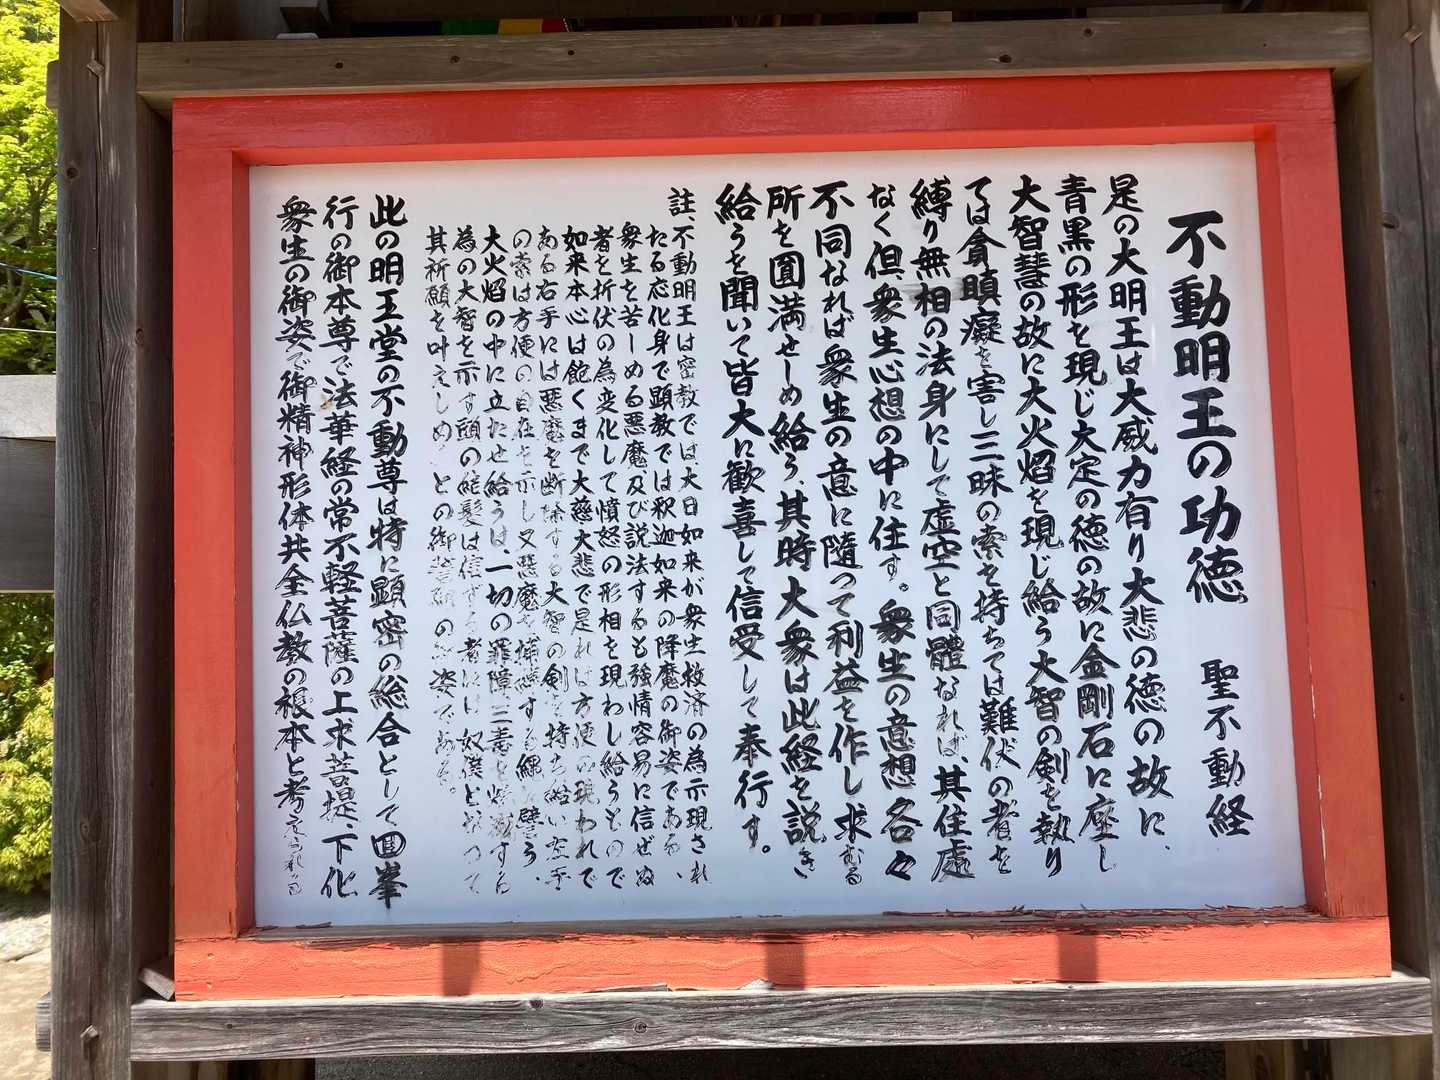 不動明王の功徳　聖不動経
是の大明王は大威力有り大悲の徳の故に、
青黒の形を現じ大定の徳の故に金剛石に座し
大智慧の故に大火焰を現じ給う大智の剣を執り
ては貪瞋癡を害し三昧の索を持ちては難伏の者を
縛り無相の法身にして虚空と同體なれば、其住處
なく但衆生心想の中に住す。衆生の意想各々
不同なれば衆生の意に隨って利益を作し求むる
所を圓満せしめ給う、其時大衆は此経を説き
給うを聞いて皆大に歡喜して信受して奉行す。
註、不動明王は密教では大日如来が衆生救済の為示現され
たる応化身で顕教では釈迦如来の降魔の御姿である、
衆生を苦しめる悪魔及び説法するも強情容易に信ぜぬ
者を折伏の為変化して憤怒の形相を現わし給うもので
如来本心は飽くまで大慈大悲で是れは方便の現われで
ある右手には悪魔を断除する大智の剣を持ち給い左手
の索は方便の自在を示し又悪魔を捕縛する縄に譬う、
大火焰の中に立たせ給うは、一切の罪障三毒を焼滅する
為の大智を示す頭の結髪は信ずる者には奴僕と なって
其祈願を叶えしめ との御誓願の 姿である。
此の明王堂の不動尊は特に顕密の総合として回峯
行の御本尊で法華経の常不軽菩薩の上求菩提、下化
衆生の御姿で御精神形体共全仏教の根本と考えられる